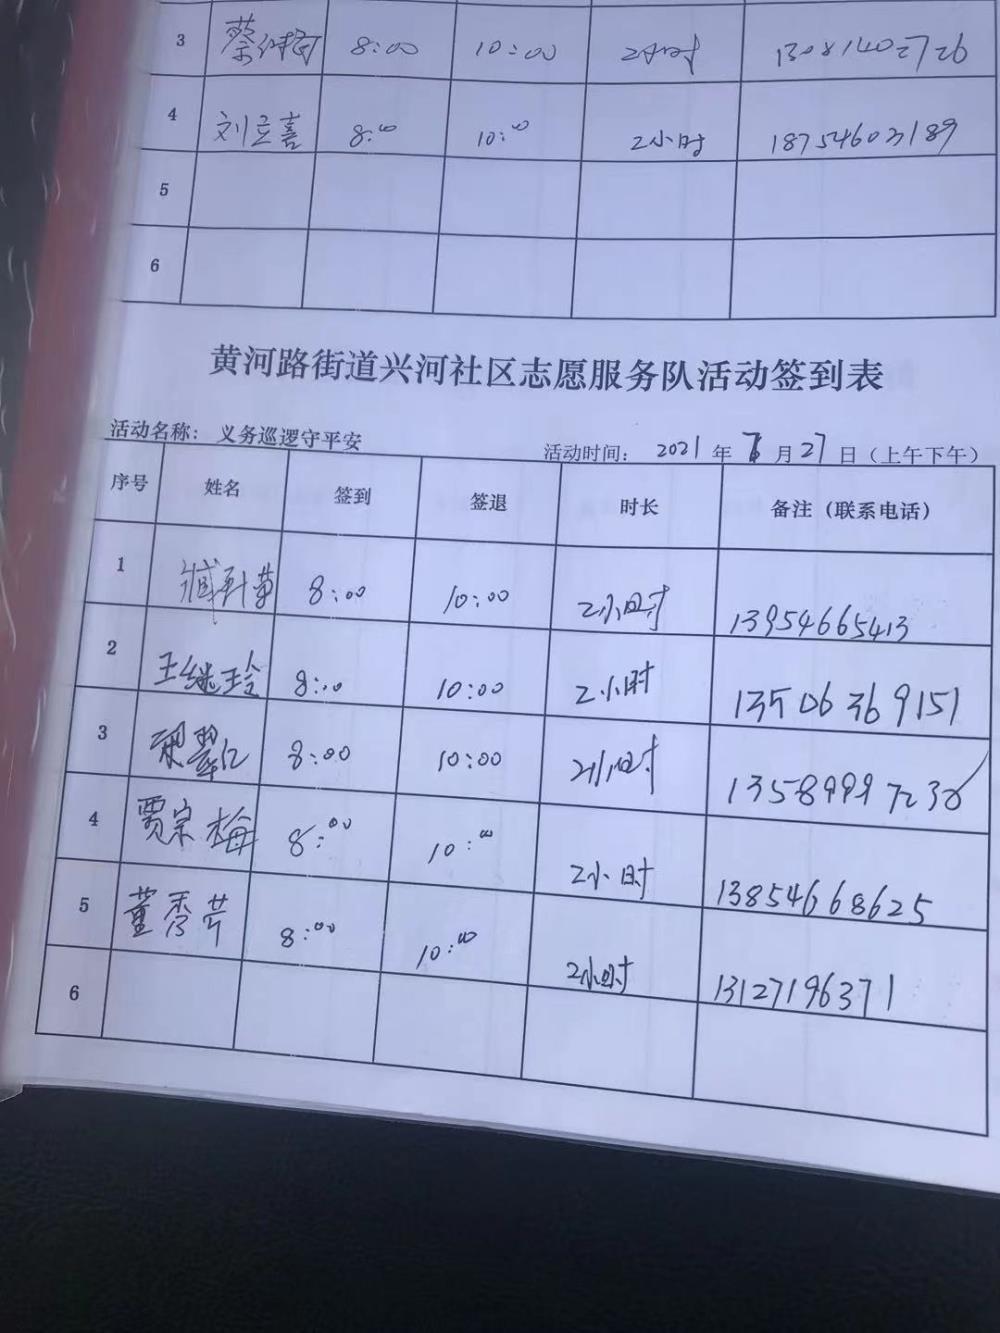 3 蔡 8:00 10:00 2小时 13081402726
4 刘立喜 8:00 10:00 2小时 18754603189
5
6
黄河路街道兴河社区志愿服务队活动签到表
活动名称：义务巡逻守平安 活动时间： 2021 年 月 27 日（上午下午）
序号 姓名 签到 签退 时长 备注（联系电话）
1 8:00 10:00 2小时 13954665413
2 王继玲 8:00 10:00 2小时 13506369151
3 8:00 10:00 2小时 13589997236
4 贾宗梅 8:00 10:00 2小时 13854668625
5 董秀芹 8:00 10:00 2小时 13127196371
6